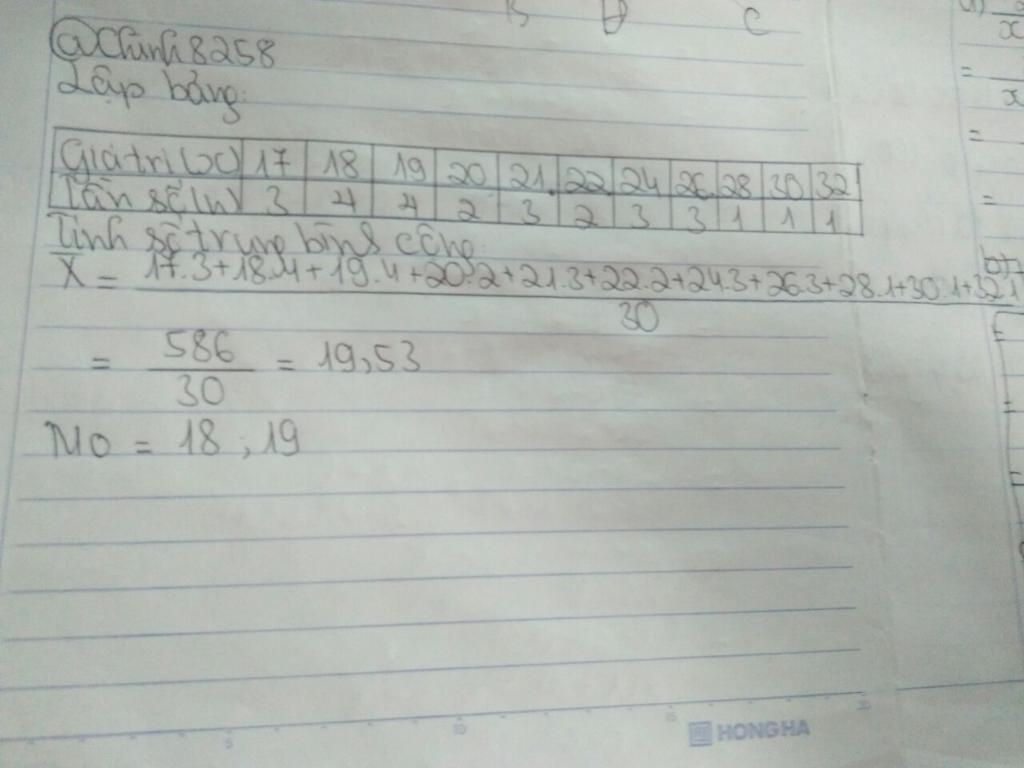 B Đ C
@Chinh8258
Lập bảng:
Giá trị (x) 17 18 19 20 21 22 24 26 28 30 32
Tần số (n) 3 4 4 2 3 2 3 3 1 1 1
Tính số trung bình cộng:
X̄ = 17.3+18.4+19.4+20.2+21.3+22.2+24.3+26.3+28.1+30.1+32.1
30
= 586 = 19,53
30
Mo = 18 ; 19
5 10 15 20
HONG HA
x
=
x
=
=